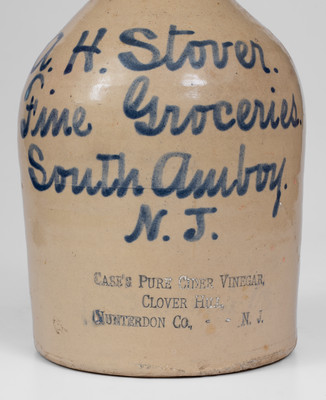 A. H. Stover.
Fine Groceries.
South Amboy.
N. J.
CASE'S PURE CIDER VINEGAR,
CLOVER HILL,
HUNTERDON CO., N. J.